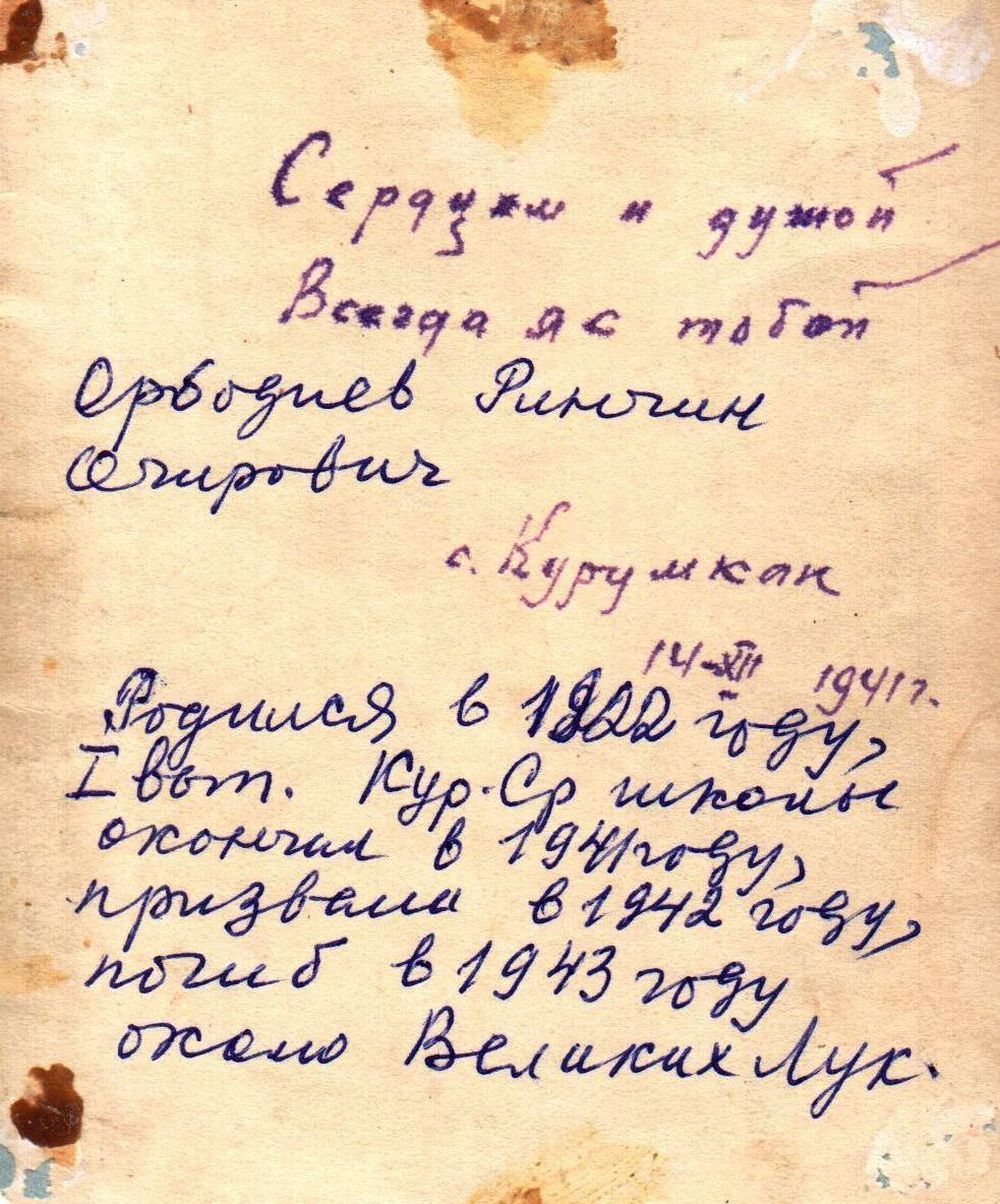 Сердцем и душой
Всегда я с тобой
Орбодиев Ринчин
Очирович
с. Курумкан
14-XII 1941 г.
Родился в 1922 году,
I вып. Кур. Ср школы
окончил в 1941 году,
призвали в 1942 году,
погиб в 1943 году
около Великих Лук.